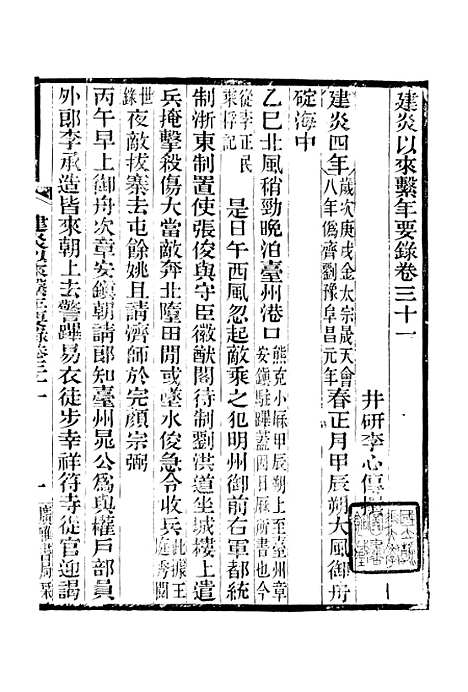 建炎以來繫年要錄卷三十一
井研李心傳撰
建炎四年歲次庚戌金太宗晟天會八年僞齊劉豫阜昌元年春正月甲辰朔大風御舟
碇海中
乙巳北風稍勁晚泊臺州港口熊克小厤甲辰朔上至臺州章安鎮駐蹕蓋因日厤所書也今從李正民乘桴記是日午西風忽起敵乘之犯明州御前右軍都統
制浙東制置使張俊與守臣徽猷閣待制劉洪道坐城樓上遣
兵掩擊殺傷大當敵奔北墮田閒或墜水俊急令收兵此據王庭秀閱世錄夜敵拔寨去屯餘姚且請濟師於完顏宗弼
丙午早上御舟次章安鎮朝請郎知臺州晁公爲與權戶部員
外郎李承造皆來朝上去警蹕易衣徒步幸祥符寺從官迎謁
建炎以來繫年要錄卷三十一
一
廣雅書局栞